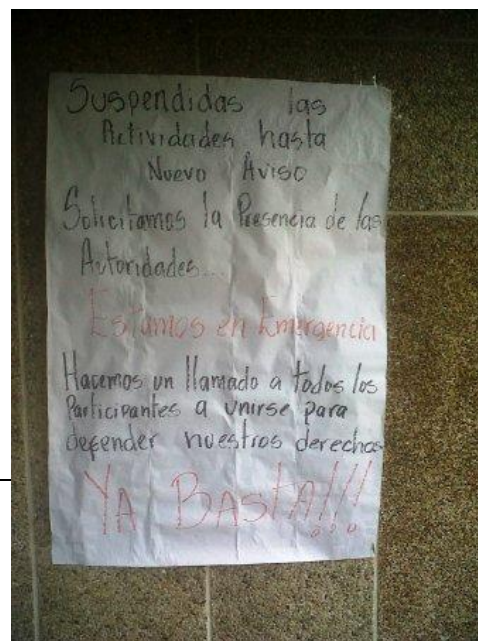 Suspendidas las
Actividades hasta
Nuevo Aviso
Solicitamos la Presencia de las
Autoridades...
Estamos en Emergencia
Hacemos un llamado a todos los
Participantes a unirse para
defender nuestros derechos
YA BASTA!!!